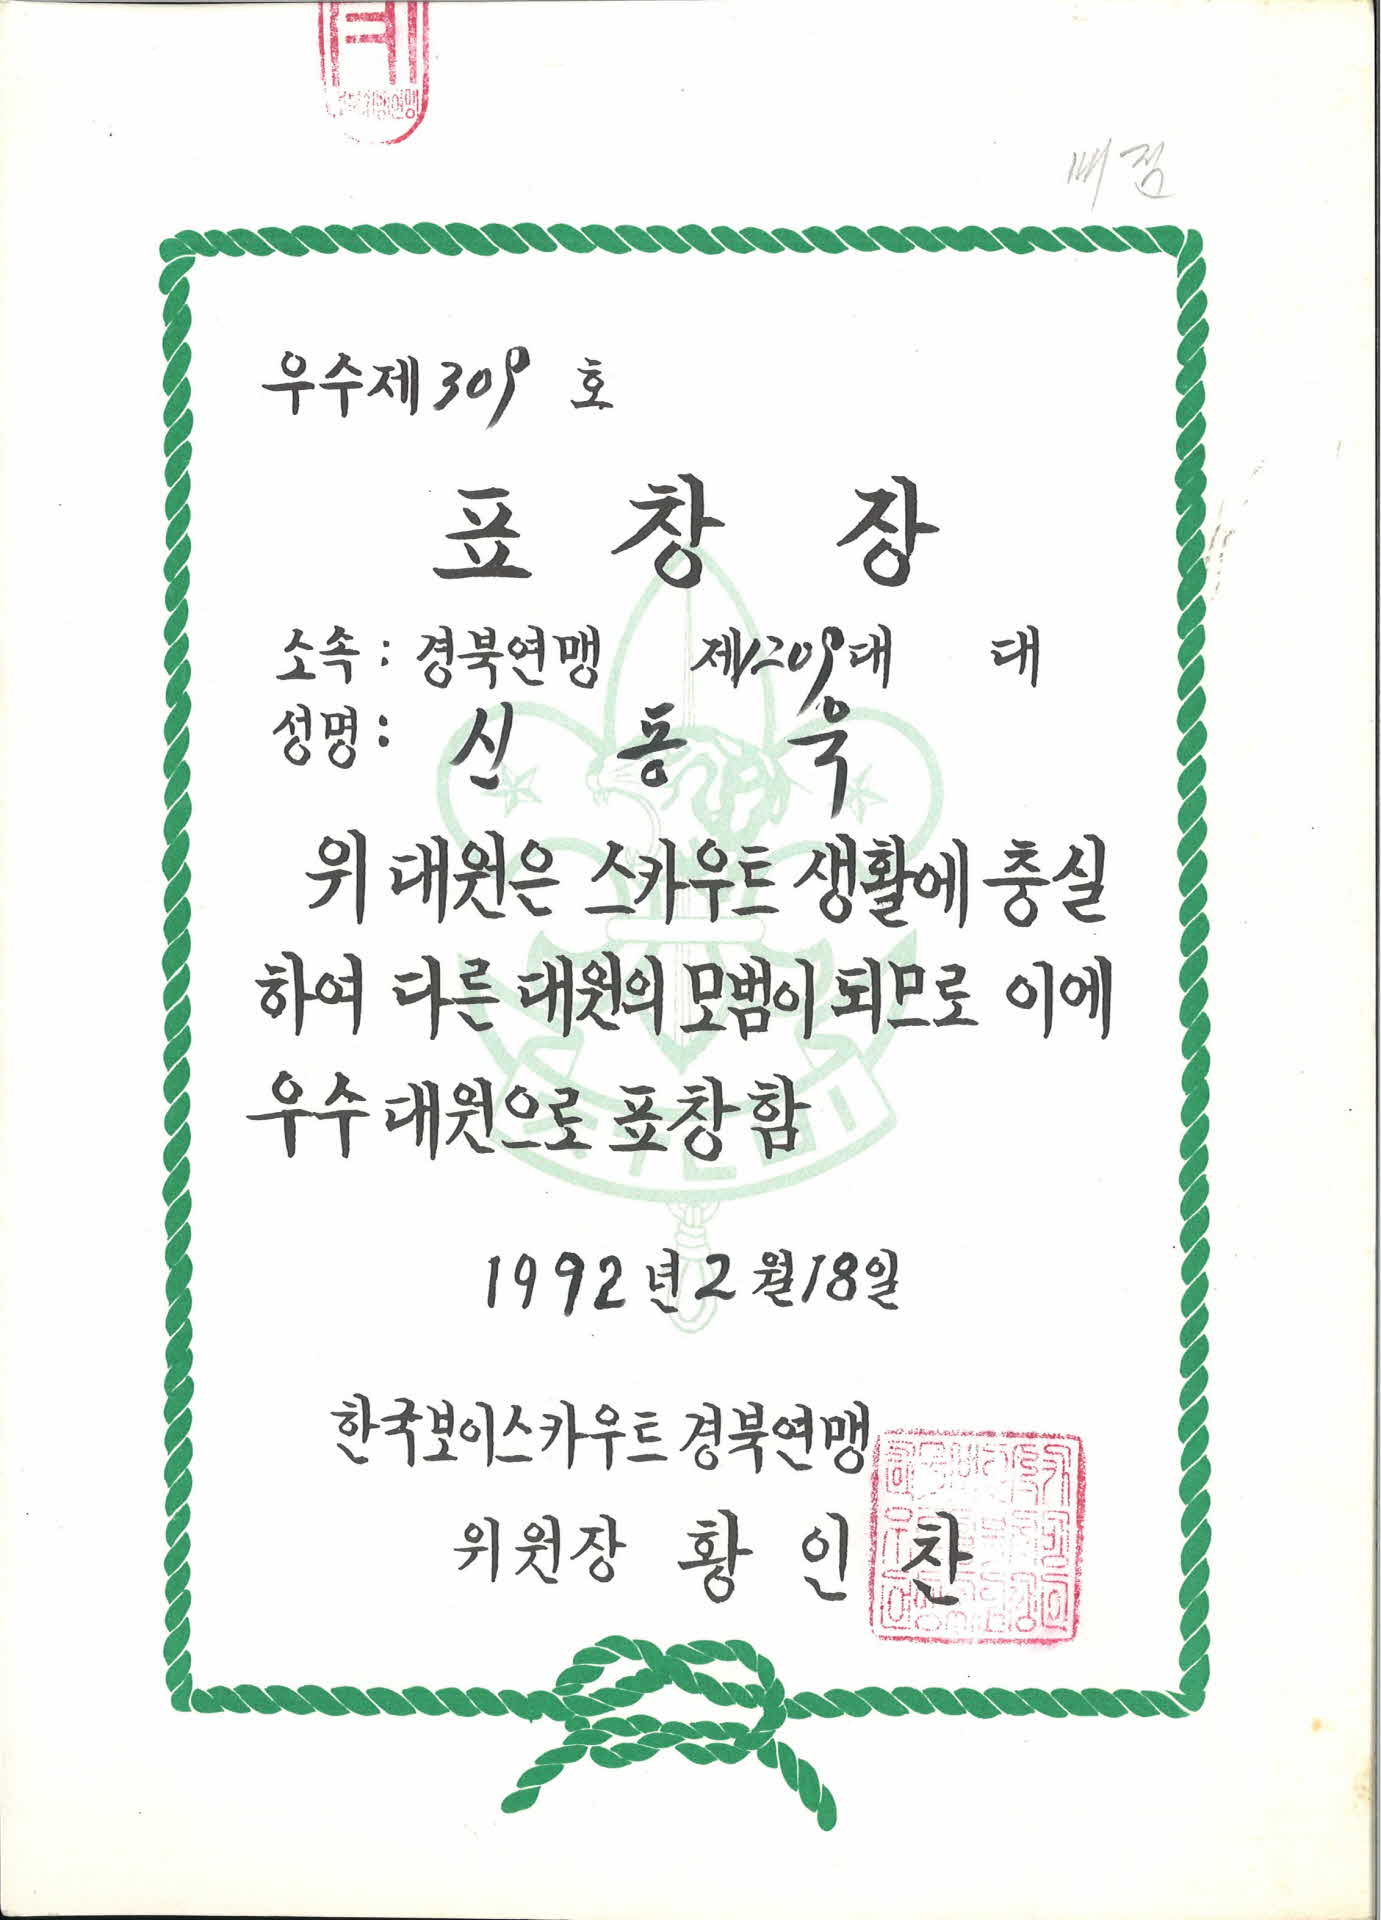 배점
우수제 309 호
표 창 장
소속 : 경북연맹 제1209대 대
성명 : 신 동 욱
위 대원은 스카우트 생활에 충실
하여 다른 대원의 모범이 되므로 이에
우수대원으로 표창함
1992년 2월 18일
한국보이스카우트 경북연맹
위원장 황 인 찬